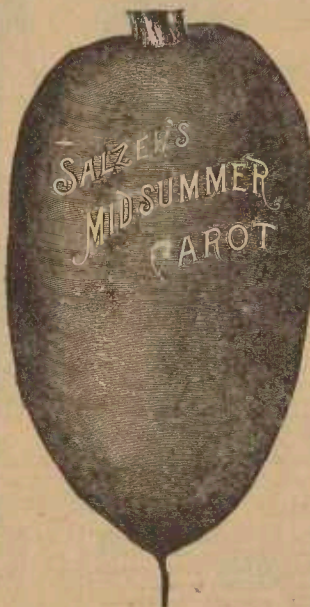 SALZER'S
MIDSUMMER
CAROT